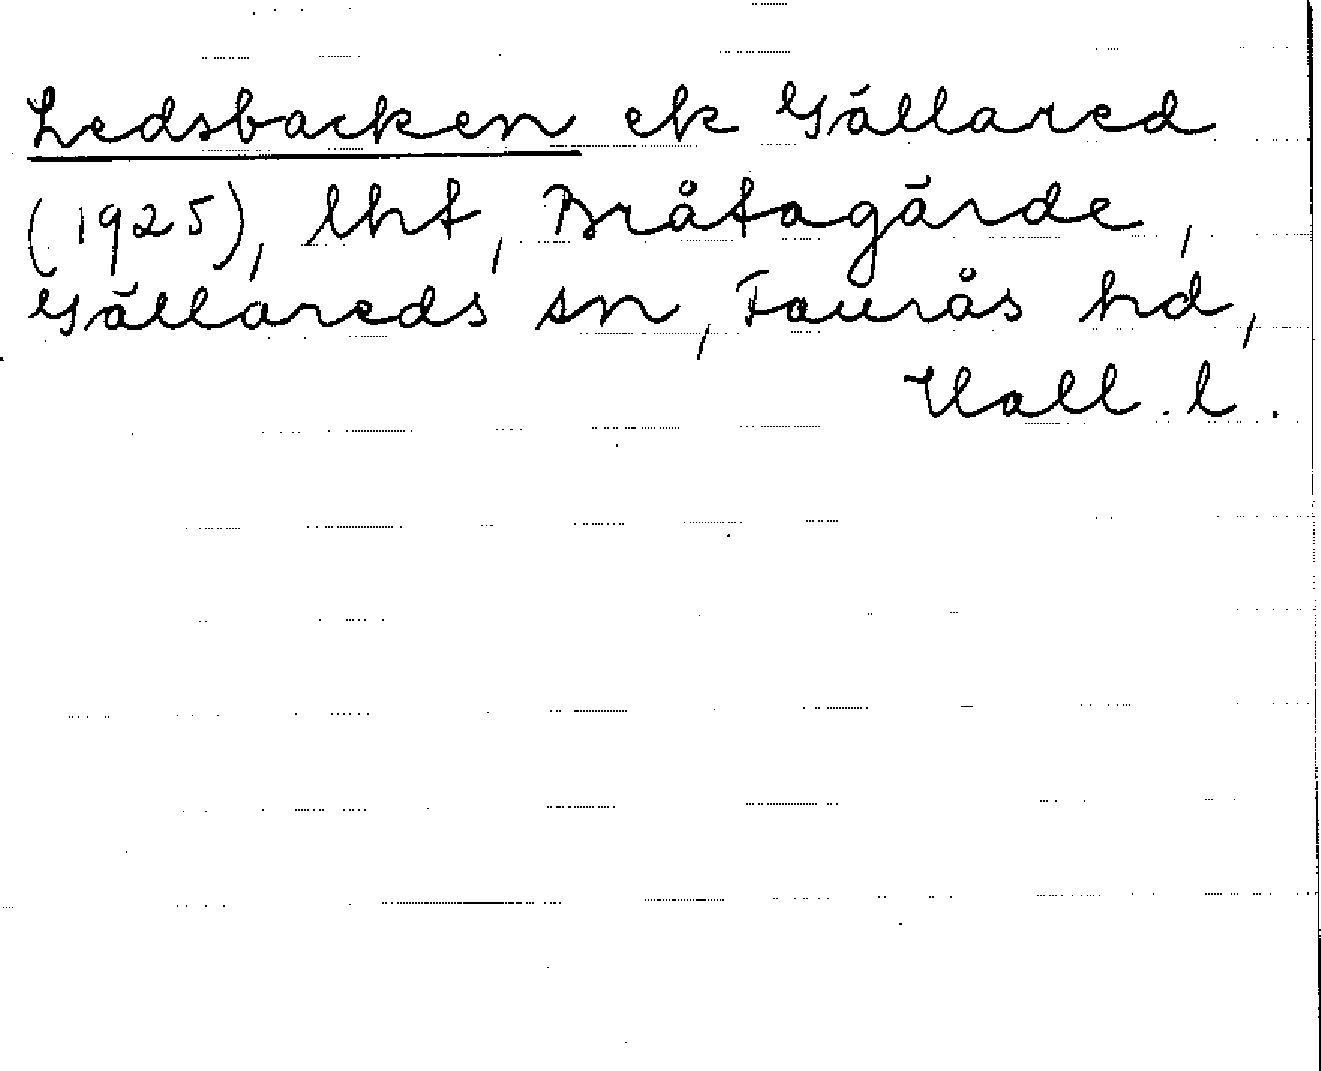 Ledsbacken ek Gällared
(1925), lht, Bråtagärde,
Gällareds sn, Faurås hd,
Hall. l.